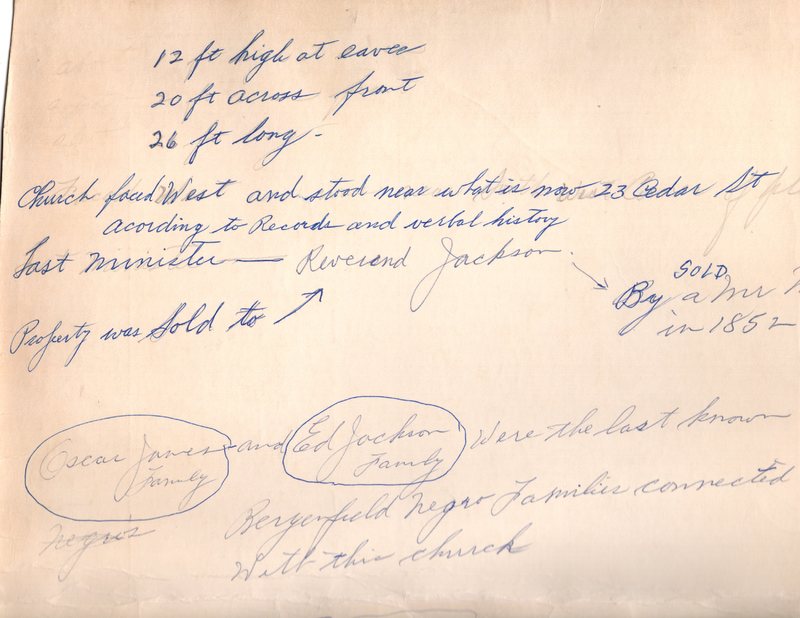 12 ft high at eaves
20 ft across front
26 ft long -
Church faced West and stood near what is now 23 Cedar St
acording to Records and verbal history
Last Minister — Reverend Jackson
SOLD
By a Mr
in 1852
Property was Sold to
Oscar Jones and Ed Jackson Were the last known
Family Family
negros Bergenfield Negro Families connected
With this church